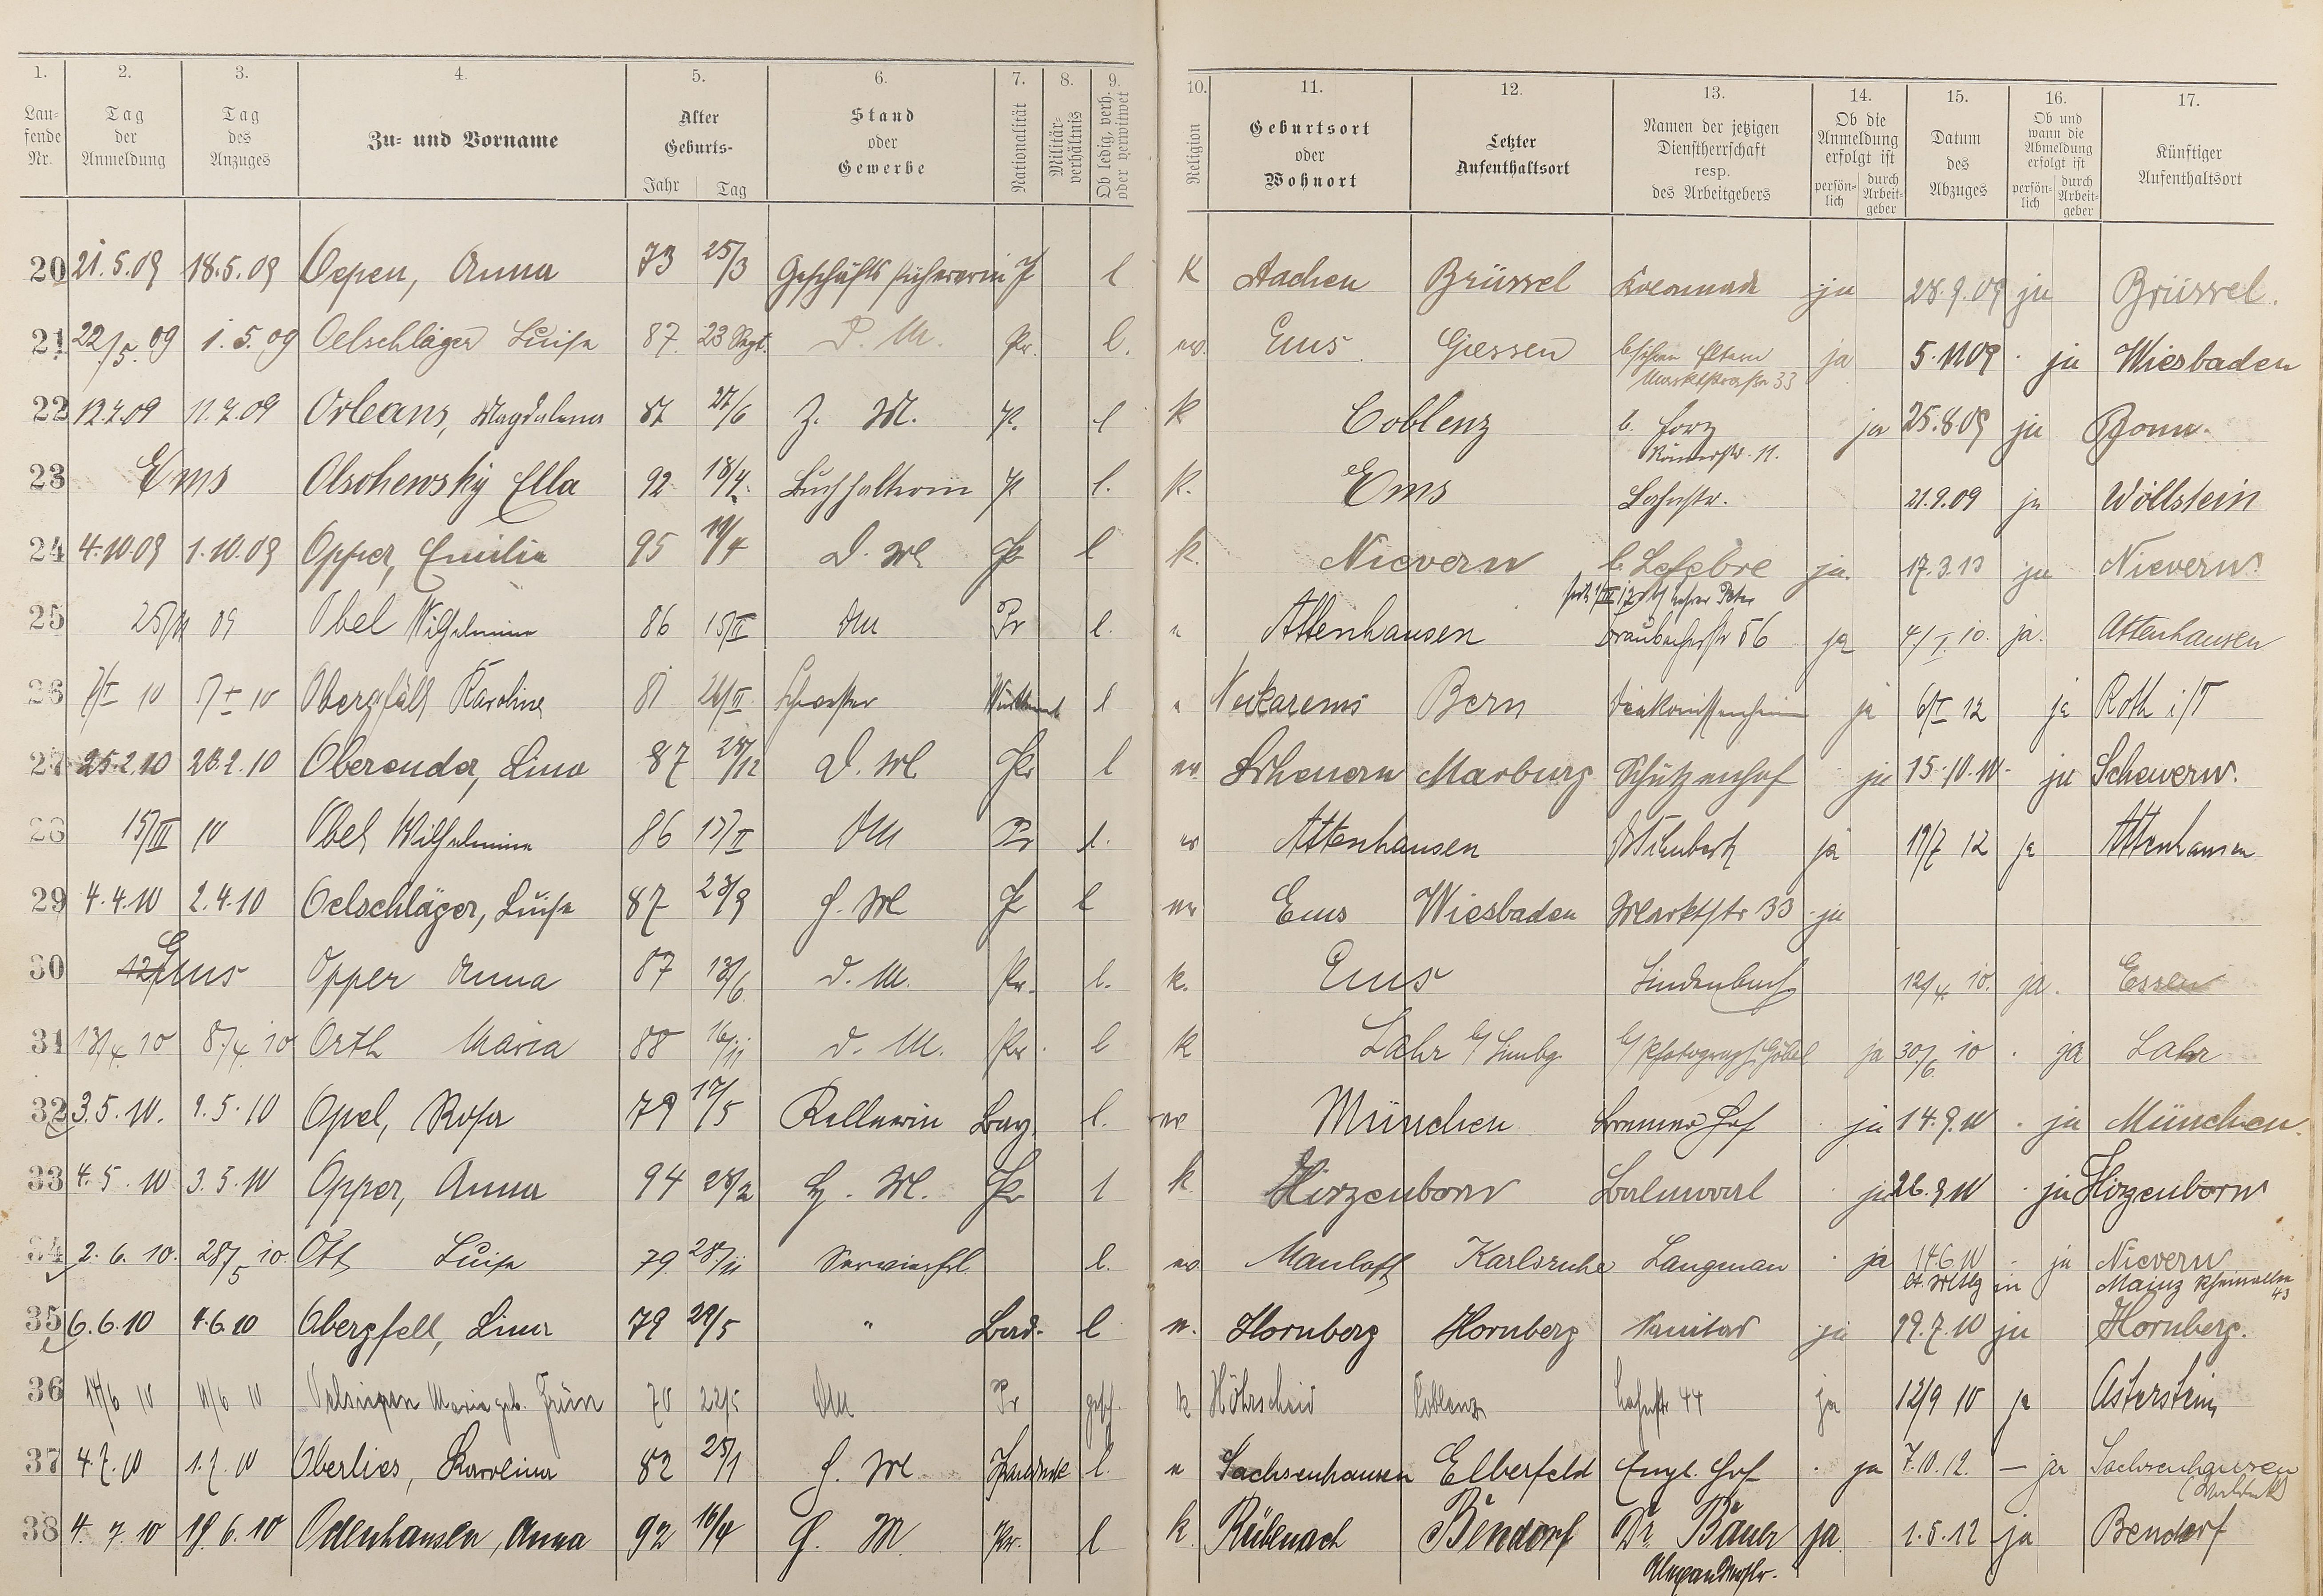 1. 2. 3. 4. 5. 6. 7. 8. 9. 10. 11. 12. 13. 14. 15. 16. 17.
Laufende Nr. Tag der Anmeldung Tag des Anzuges Zu- und Vorname Alter Geburts- Jahr Tag Stand oder Gewerbe Nationalität Militärverhältnis Ob ledig, verh. oder verwitwet Religion Geburtsort oder Wohnort Letzter Aufenthaltsort Namen der jetzigen Dienstherrschaft resp. des Arbeitgebers Ob die Anmeldung erfolgt ist persönlich durch Arbeitgeber Datum des Abzuges Ob und wann die Abmeldung erfolgt ist persönlich durch Arbeitgeber Künftiger Aufenthaltsort
20 21.5.09 18.5.09 Oepen, Anna 73 25/3 Geschäftsführerin l K Aachen Brüssel ja 28.9.09 ja Brüssel.
21 22/5.09 1.5.09 Oelschläger Luise 87. 23 Sept. D. M. Pr. l. ev. Ems Giessen Marktstrasse 33 ja 5.11.09 ja Wiesbaden
22 12.7.09 11.7.09 Orleans, Magdalena 87 27/6 Z. M. P. l k Coblenz b. Römerstr. 11. ja 25.8.09 ja Bonn.
23 Ems Olschewsky Ella 92 18/4. Buchhalterin P l. k. Ems Lahnstr. 21.9.09 ja Wöllstein
24 4.10.09 1.10.09 Opper, Emilie 95 19/4 D. M Pr l k. Nievern b. Lefebre ja. 17.3.13 ja Nievern
25 09 Obel Wilhelmine 86 15/II DM Pr l. Attenhausen Braubacherstr 56 ja 4/I 10. ja. Attenhausen
26 7/I 10 5/I 10 Obergfäll Karoline 81 26/II Schwester Württemb l Neckarems Bern Diakonissenheim ja 6/I 12 ja Roth i/T
27 25.2.10 23.2.10 Oberender, Lina 87 28/12 D. M Pr l ev. Scheuern Marburg Schützenhof ja 15.10.10 ja Scheuern.
28 15/III 10 Obel Wilhelmine 86 15/II DM Pr l. ev Attenhausen ja 19/7 12 ja Attenhausen
29 4.4.10 2.4.10 Oelschläger, Luise 87 23/9 H. M Pr l ev Ems Wiesbaden Marktstr 33 ja
30 Ems Opper Anna 87 13/6 D. M. Pr. l. k. Ems Lindenbach 12/4. 10. ja. Essen
31 13/4. 10 8/4. 10 Orth Maria 88 16/11 D. M. Pr. l k Lahr b/ Limbg. b/ Photograph Göbel ja 30/6. 10 ja Lahr
32 3.5.10. 1.5.10 Opel, Rosa 79 17/5 Kellnerin Bay. l. ev München Bremer Hof ja 14.9.10 ja München.
33 4.5.10 3.5.10 Opper, Anna 94 28/2 H. M. Pr l k Hirzenborn Balmoral ja 26.9.10 ja Hirzenborn
34 2.6.10. 28/5 10. Ott Luise 79. 28/11 Servierfrl. l. ev. Karlsruhe Langenau ja 14.6.10 ja Nievern
Mainz Rheinallee 43
35 6.6.10 4.6.10 Obergfell, Lina 79 29/5 " Bad. l ev. Hornberg Hornberg Sanitas ja 19.7.10 ja Hornberg.
36 14/6 10 11/6 10 Maria geb. 70 22/5 DM Pr gesch. k Höhscheid Coblenz Lahnstr 44 ja 12/9 10 ja Asterstein
37 4.7.10 1.7.10 Oberlies, Karolina 82 25/1 H. M l. ev Sachsenhausen Elberfeld Engl. Hof ja 7.10.12. – ja Sachsenhausen
(Waldeck)
38 4.7.10 19.6.10 Odenhausen, Anna 92 16/4 H. M Pr. l k. Rübenach Bendorf Dr. Bauer ja 1.5.12 ja Bendorf
Alexanderstr.